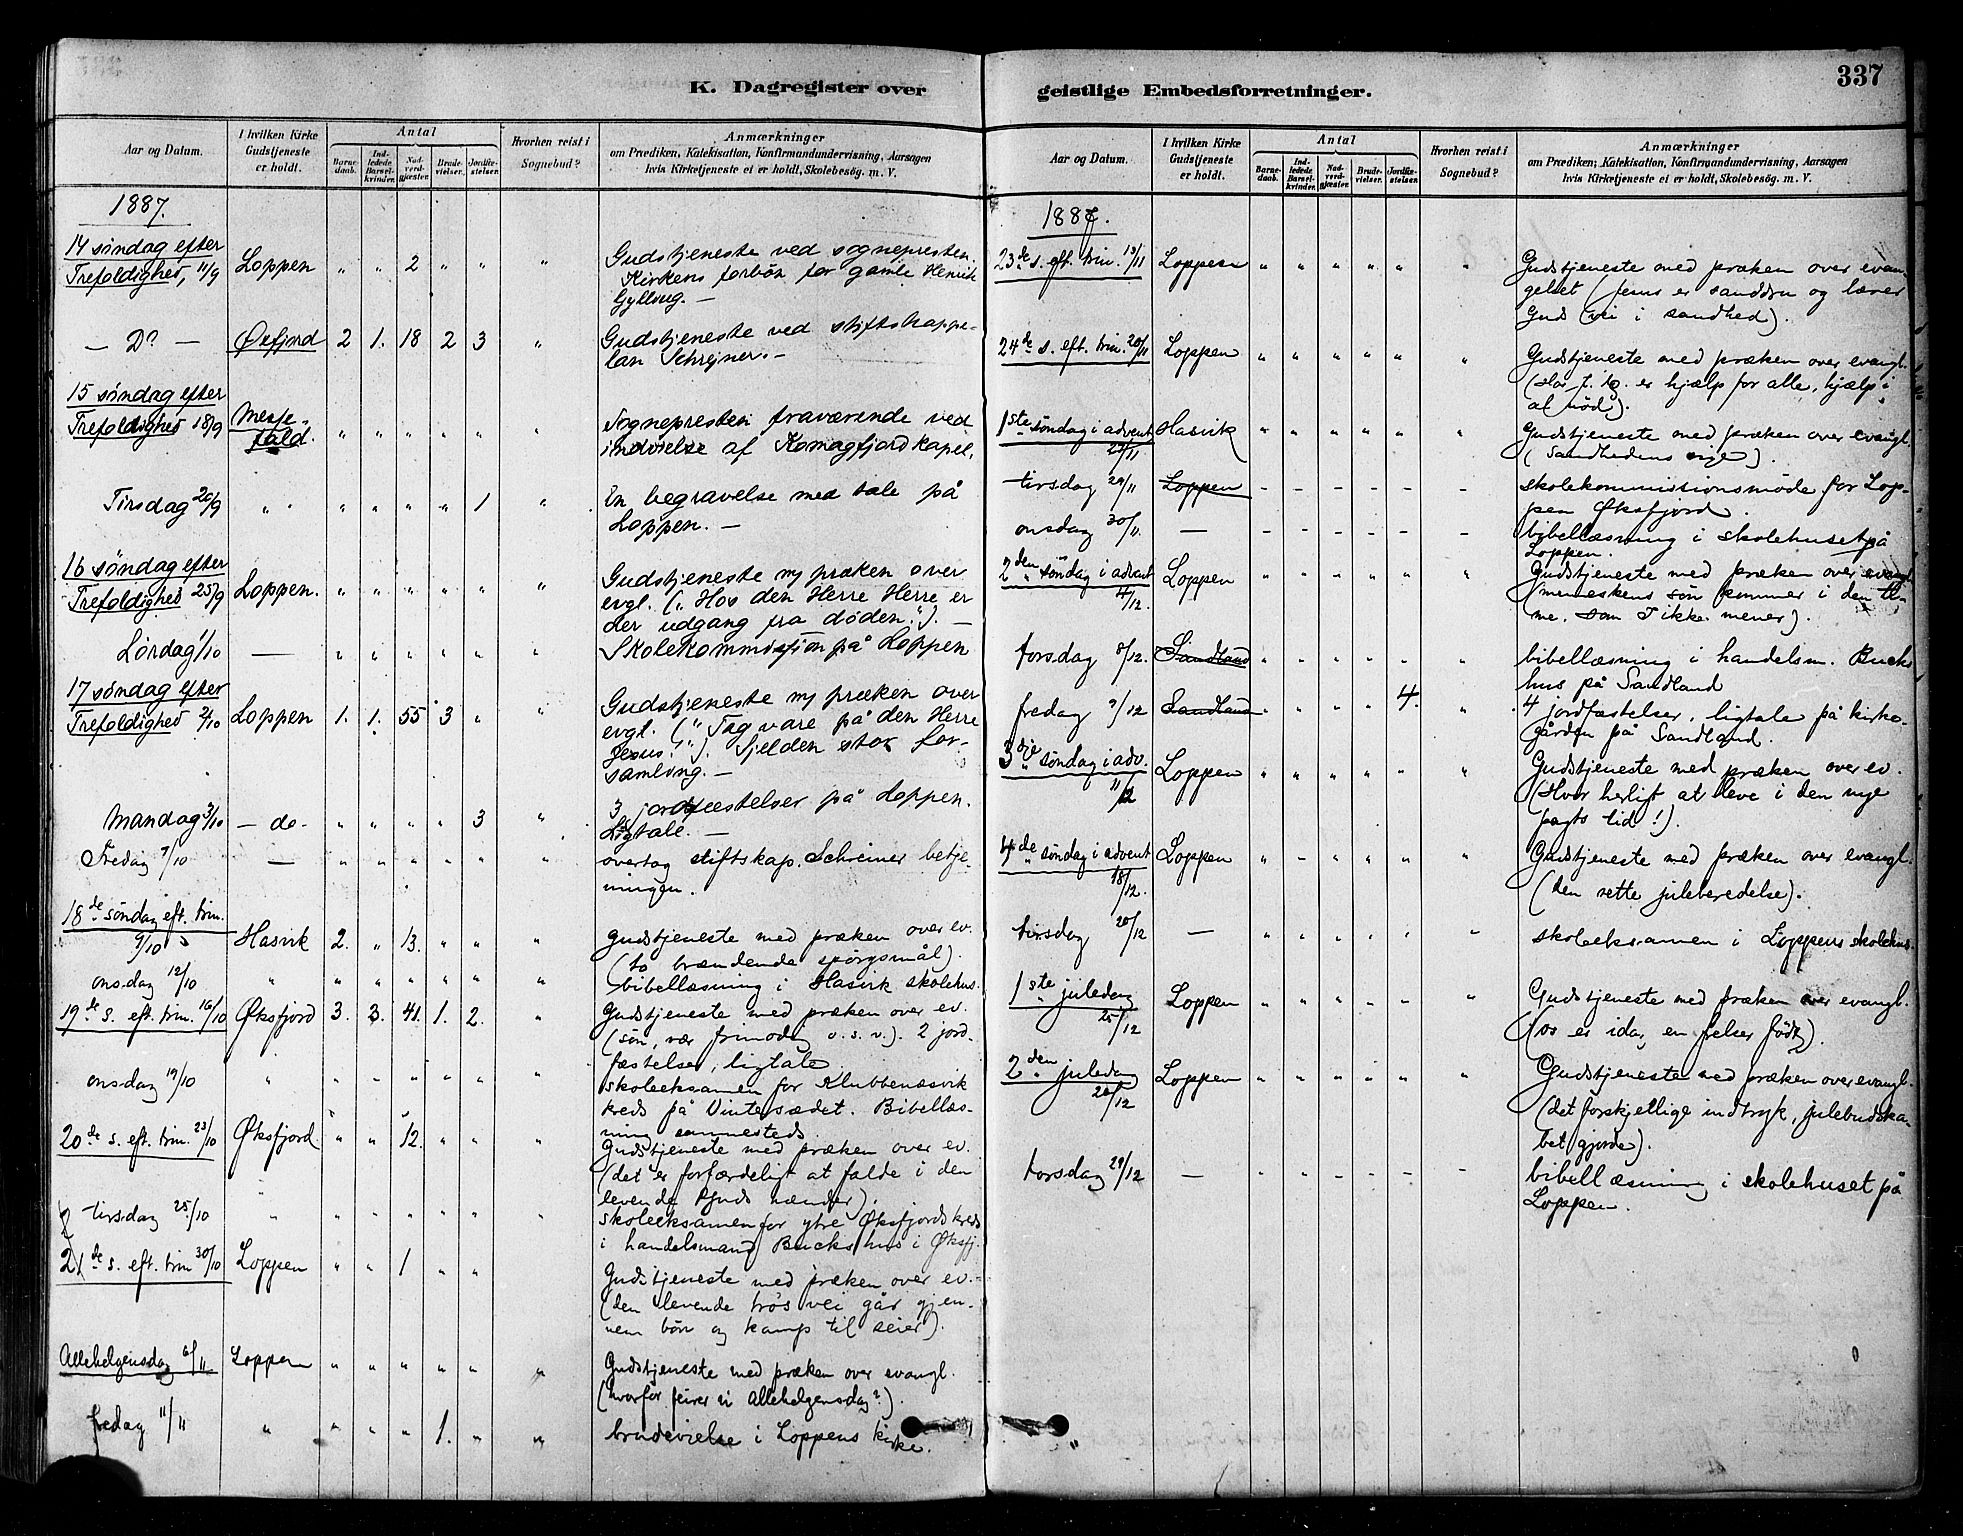 K. Dagregister over
Aar og Datum.
I hvilken Kirke Gudstjeneste er holdt.
Antal
Barnedaab.
Indledede Barselkvinder.
Nadverdgjæster.
Brudevielser.
Jordfæstelser.
Hvorhen reist i Sognebud?
Anmærkninger
om Prædiken, Katekisation, Konfirmandundervisning, Aarsagen
hvis Kirketjeneste ei er holdt, Skolebesøg. m. V.
1887.
14 søndag efter
Trefoldighed, 11/9 Loppen " " 2 " " " Gudstjeneste ved sognepresten.
Kirkens forbön for gamle Henrik
Gyllvug. —
— Do — Øxfjord 2 1. 18 2 3 " Gudstjeneste ved stiftskappe-
lan Schrejner. —
15 søndag efter
Trefoldighed 18/9 Messe-
fald. " " " " " " Sognepresten fraværende ved
indvielse af Komagfjord kapel.
Tirsdag 20/9 " " " " " " 1 " En begravelse med tale på
Loppen. —
16 søndag efter
Trefoldighed 25/9 Loppen. " " " " " " Gudstjeneste m/ præken over
evgl. ("Hos den Herre Herre er
der udgang fra døden."). —
Lørdag 1/10 — " " " " " " Skolekommission på Loppen
17 søndag efter
Trefoldighed 2/10 Loppen 1. 1. 55 3 " " Gudstjeneste m/ præken over
evgl. ("Tag vare på den Herre
Jesus!"). Sjelden stor for-
samling. —
Mandag 3/10 — do — " " " " 3 " 3 jordfæstelser på Loppen.
Ligtale. —
Fredag 7/10 — " " " " " " overtog stiftskap. Schreiner betje-
ningen.
18de søndag eft. trin.
9/10 Hasvik 2. " 13. " " " gudstjeneste med præken over ev.
(to brændende spörgsmål).
onsdag 12/10 " " " " " " " bibellæsning i Hasvik skolehus.
19de s. eft. trin. 16/10 Øksfjord 3. 3. 41. 1. 2. " Gudstjeneste med præken over ev.
(sön, vær frimodig o. s. v.). 2 jord-
fæstelser, ligtale.
onsdag 19/10 " " " " " " " skoleeksamen for Klubbenæsvik
kreds på Vintersædet. Bibellæs-
ning sammesteds.
20de s. eft. trin. 23/10 Øksfjord " " 12. " " " Gudstjeneste med præken over ev.
(det er forfærdeligt at falde i den
levende Guds hænder).
tirsdag 25/10 " " " " " " " skoleeksamen for ytre Øksfjords kreds
i handelsmand Bucks hus i Øksfj.
21de s. eft. trin 30/10 Loppen " " 1 " " Gudstjeneste med præken over ev.
(den levende trøs vei går gjen-
nem bön og kamp til seier).
Allehelgensdag 6/11 Loppen " " " " " " Gudstjeneste med præken over evangl.
(hvorfor feirer vi Allehelgensdag?).
fredag 11/11 " " " " 1. " " brudevielse i Loppens kirke.
337
geistlige Embedsforretninger.
Aar og Datum.
I hvilken Kirke Gudstjeneste er holdt.
Antal
Barnedaab.
Indledede Barselkvinder.
Nadverdgjæster.
Brudevielser.
Jordfæstelser.
Hvorhen reist i Sognebud?
Anmærkninger
om Prædiken, Katekisation, Konfirmandundervisning, Aarsagen
hvis Kirketjeneste ei er holdt, Skolebesøg. m. V.
1887.
23de s. eft. trin. 13/11 Loppen " " " " " " Gudstjeneste med præken over evan-
geliet (Jesus er sanddru og lærer
Guds vei i sandhed).
24de s. eft. trin. 20/11 Loppen " " " " " " Gudstjeneste med præken over evangl.
(Hos J. er hjælp for alle, hjælp i
al nöd).
1ste søndag i advent
27/11 Hasvik " " " " " " Gudstjeneste med præken over evangl.
(Sandhedens rige).
tirsdag 29/11 Loppen – – – – – – skolekommissionsmøde for Lop-
pen Øksfjord.
onsdag 30/11 — – – – – – – bibellæsning i skolehuset på
Loppen.
2den søndag i advent
4/12. Loppen " " " " " " Gudstjeneste med præken over evangl.
(menneskens sön kommer i den ti-
me, som I ikke mener).
torsdag 8/12. Sandland " " " " " " bibellæsning i handelsm. Bucks
hus på Sandland
fredag 9/12 Sandland " " " " 4. " 4 jordfæstelser, ligtale på kirke-
gården på Sandland.
3die søndag i adv.
11/12 Loppen " " " " " " Gudstjeneste med præken over ev.
(Hvor herligt at leve i den nye
pagts tid!).
4de søndag i advent
18/12. Loppen " " " " " " Gudstjeneste med præken over evangl.
(den rette juleberedelse).
tirsdag 20/12 — " " " " " " skoleeksamen i Loppens skolehus.
1ste juledag
25/12 Loppen " " " " " " Gudstjeneste med præken over evangl.
(os er idag en frelser født).
2den juledag
26/12 Loppen " " " " " " Gudstjeneste med præken over evangl.
(det forskjellige indtryk, julebudska-
bet gjorde).
torsdag 29/12 — " " " " " " bibellæsning i skolehuset på
Loppen.